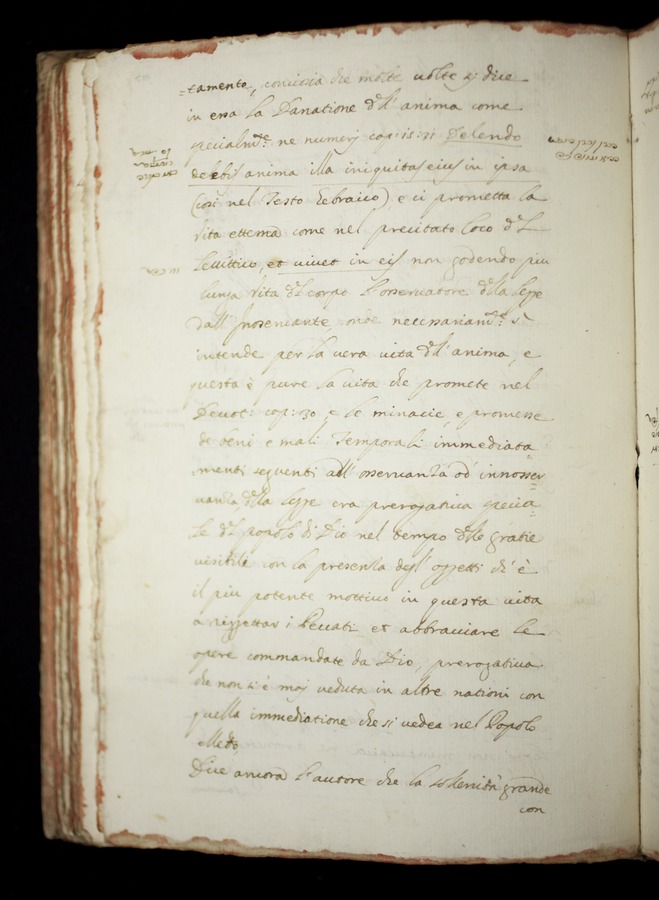 =tamento, conciosia che molte volte si dice
in essa la Danatione dell' anima come
specialmte. ne numeri cap: 15: 31 Delendo
delebis anima illa iniquitas eius in ipsa
(così nel Testo Ebraico) e ci prometta la
vita etterna come nel precitato loco del
Levitico, et vivet in eis non godendo piu
lunga vita del corpo l'osservatore della legge
dall' Inoservante, onde necessariamte. si
intende per la vera vita dell' anima, e
questa è pure la vita che promete nel
Deuot: cap: 30, e le minacie, e promesse
de beni e mali Temporali immediata
menti seguenti all' osservanza od' innosser
vanza della legge era prerogativa specia
le del popolo di Dio nel tempo delle gratie
visibili con la presenza degl' oggetti ch' è
il piu potente mottivo in questa vita
a rigettar i Peccati et abbracciare le
opere commandate da Dio, prerogativa
che non si è maj veduta in altre nationi con
quella immediatione che si vedea nel Popolo
elletto
Dice ancora l'autore che la solenità grande
con